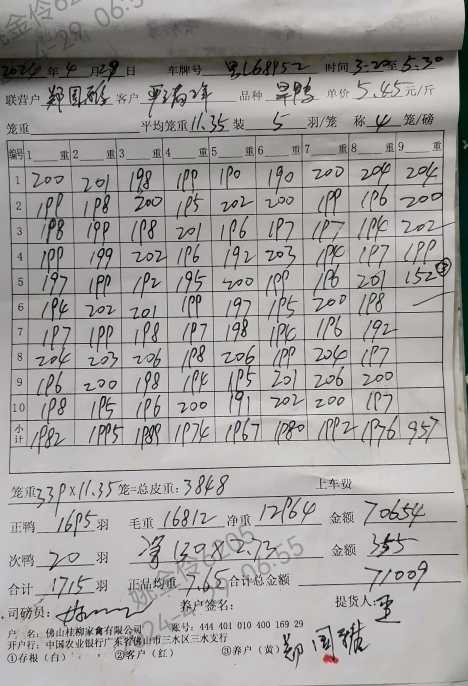 2024年4月29日 车牌号 粤L68952 时间3-20至5.30
联营户 郑国雄 客户 品种 旱鸭 单价5.45元/斤
笼重 平均笼重11.35 装 5 羽/笼 称 4 笼/磅
编号 1 重 2 重 3 重 4 重 5 重 6 重 7 重 8 重 9 重
1 200 201 198 199 190 190 200 204 204
2 199 198 200 195 202 200 199 196 200
3 198 199 198 201 196 197 197 194 202
4 199 199 202 196 192 203 194 197 199
5 197 199 192 195 200 199 196 201 152 ③
6 194 202 201 199 197 195 200 198
7 197 199 198 197 198 194 196 192
8 204 203 206 198 206 199 204 197
9 196 200 198 194 195 201 206 200
10 198 195 196 200 191 202 200 197
小计 1982 1995 1989 1974 1967 1980 1992 1976 957
笼重 339×11.35 笼=总皮重:3848 上车费
正鸭 1695 羽 毛重 16812 净重 12964 金额 70654
次鸭 20 羽 净 130×2.73 金额 355
合计 1715 羽 正品均重 7.65 合计总金额 71009
司磅员: 养户签名: 提货人:
户 名:佛山桂柳家禽有限公司 账号:444 401 010 400 169 29
开户行:中国农业银行广东省佛山市三水区三水支行
①存根(白) ②客户(红) ③养户(黄) 郑国雄